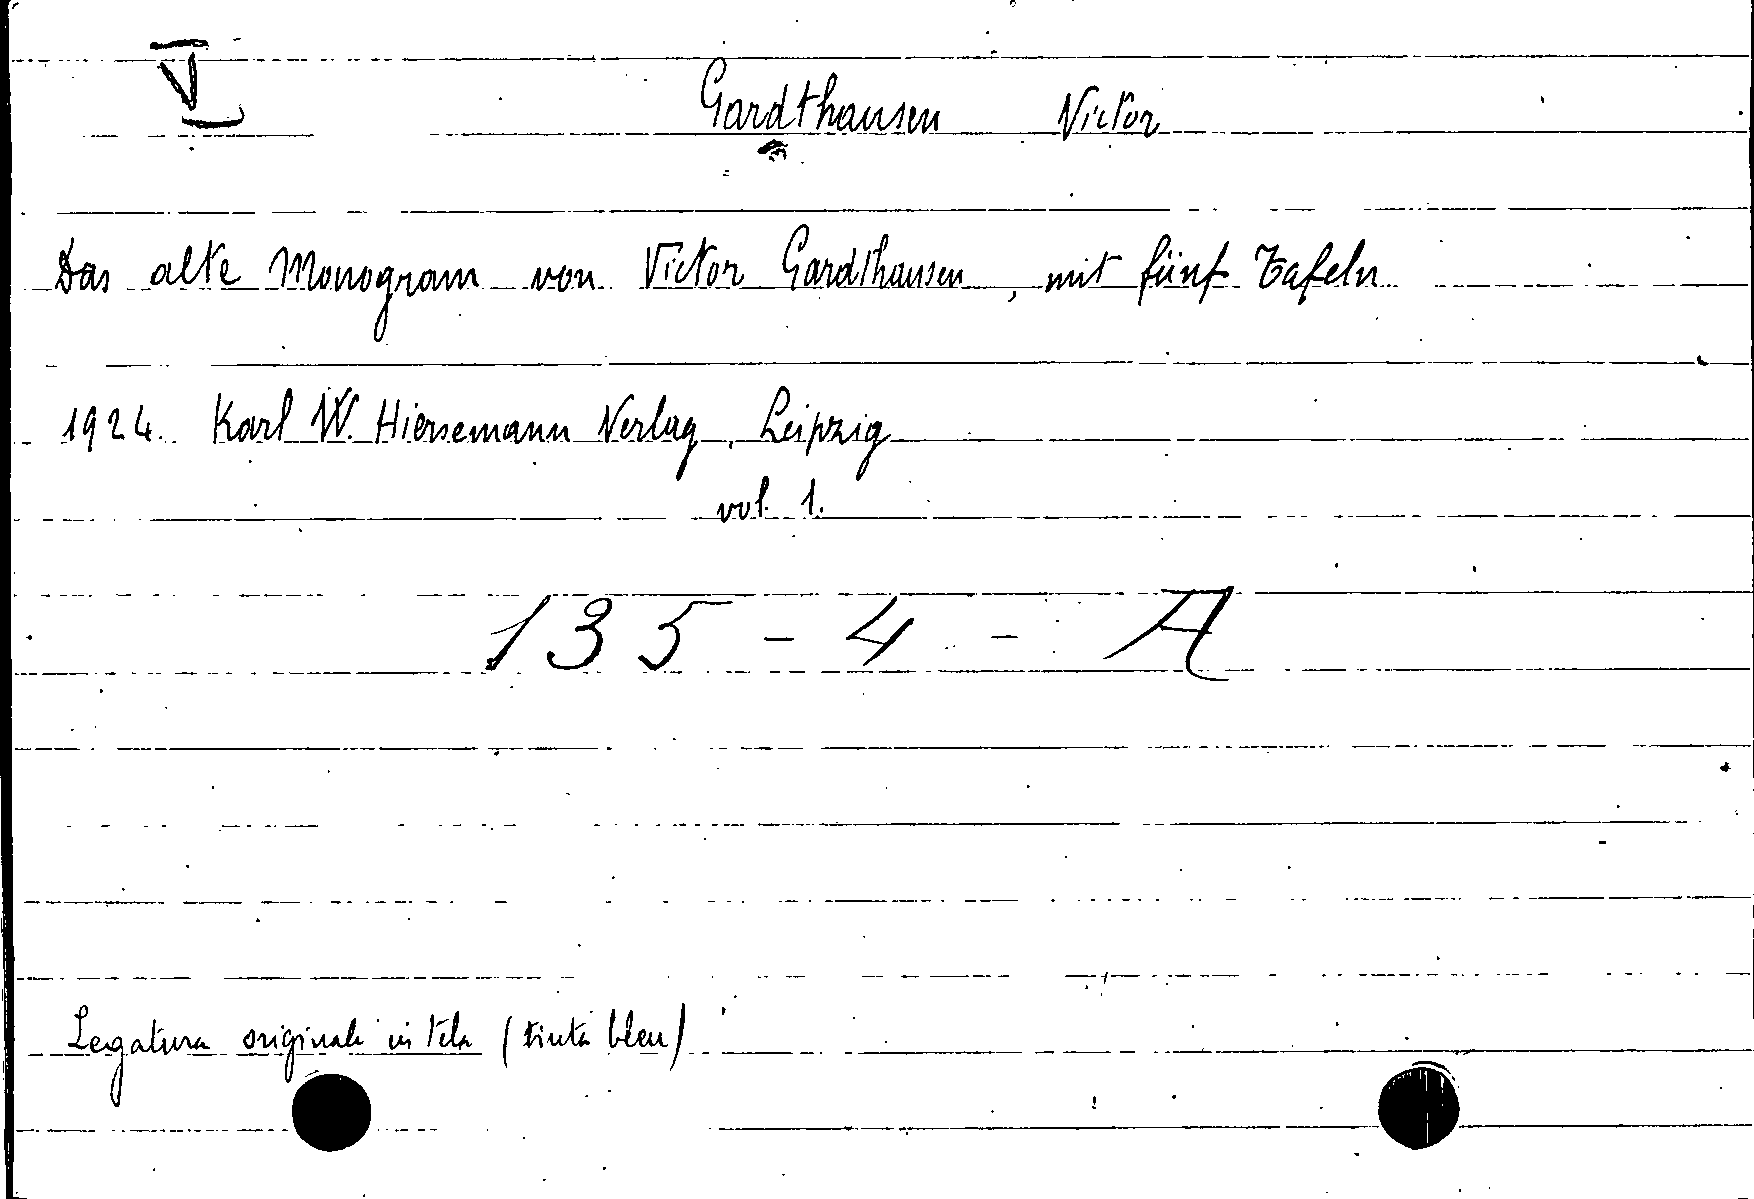 V
Gardthausen Victor
Das alte Monogram von Victor Gardthausen, mit fünf Tafeln
1924. Karl W. Hiersemann Verlag, Leipzig
vol. 1.
135 - 4 - A
Legatura originale in tela (tinta bleu)